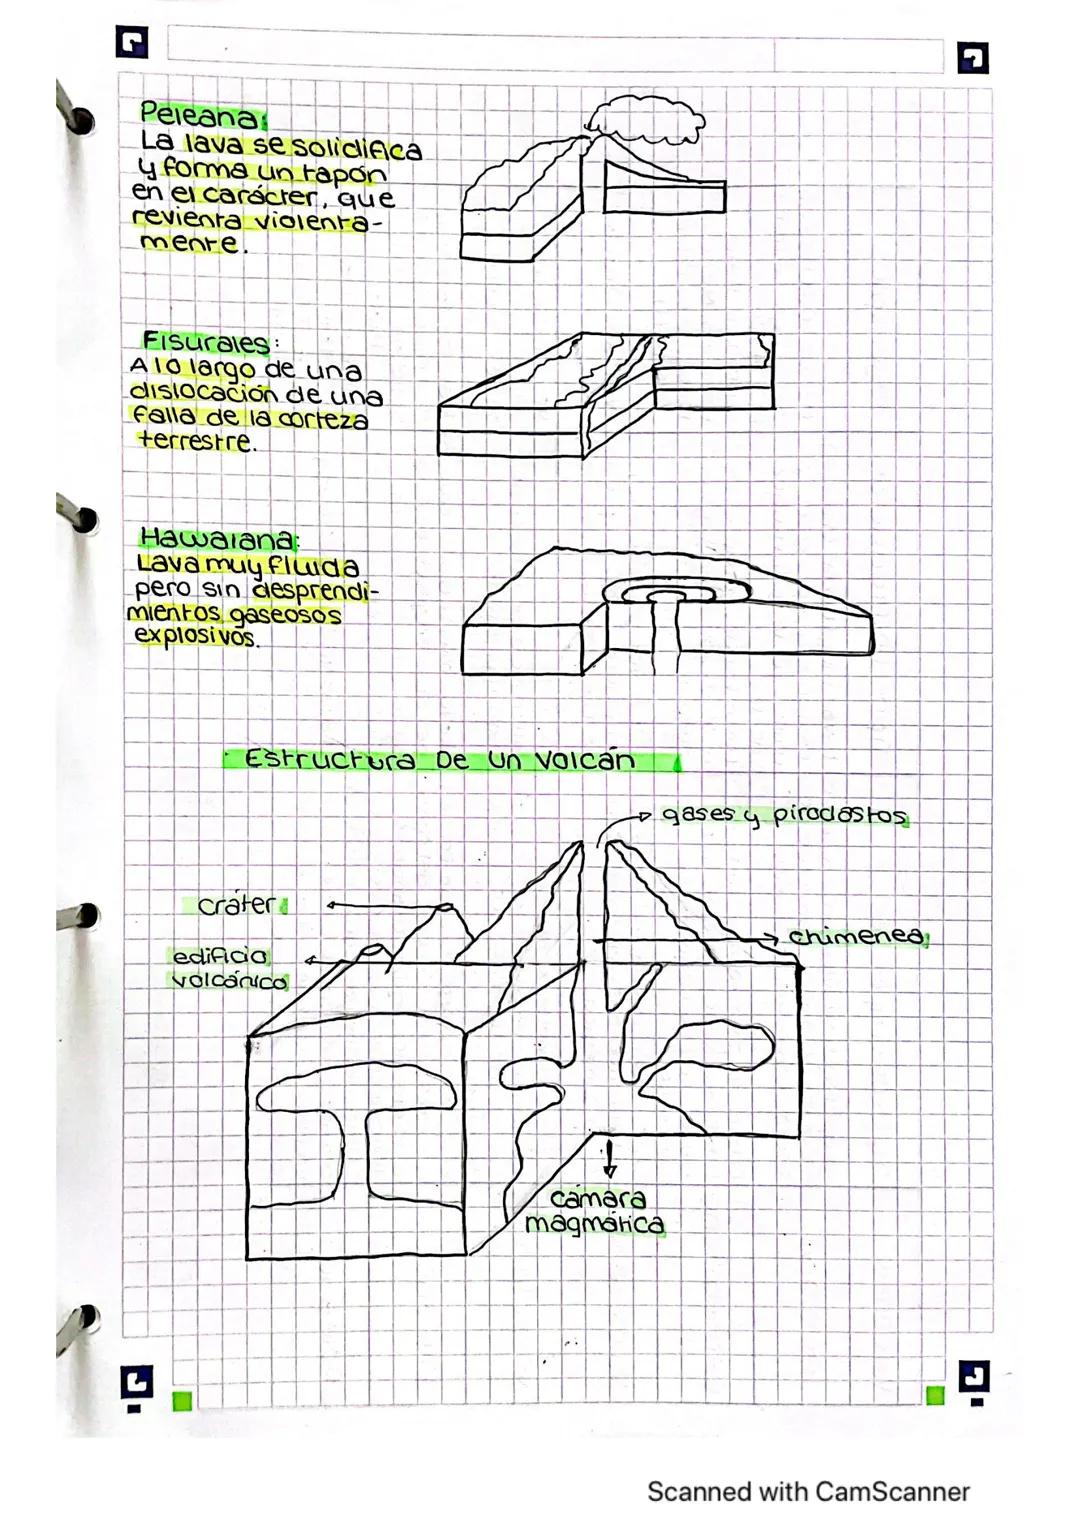 Peleana:
La lava se solidifica
y forma un tapón
en el carácter, que
revienta violenta-
mente.
Fisurales:
A lo largo de una
dislocación de una
falla de la corteza
terrestre.
Hawaiana:
Lava muy fluida
pero sin desprendi-
mientos gaseosos
explosivos.
Estructura De Un Volcán
gases y piroclastos
cráter
chimenea
edificio
volcánico
cámara
magmática
Scanned with CamScanner